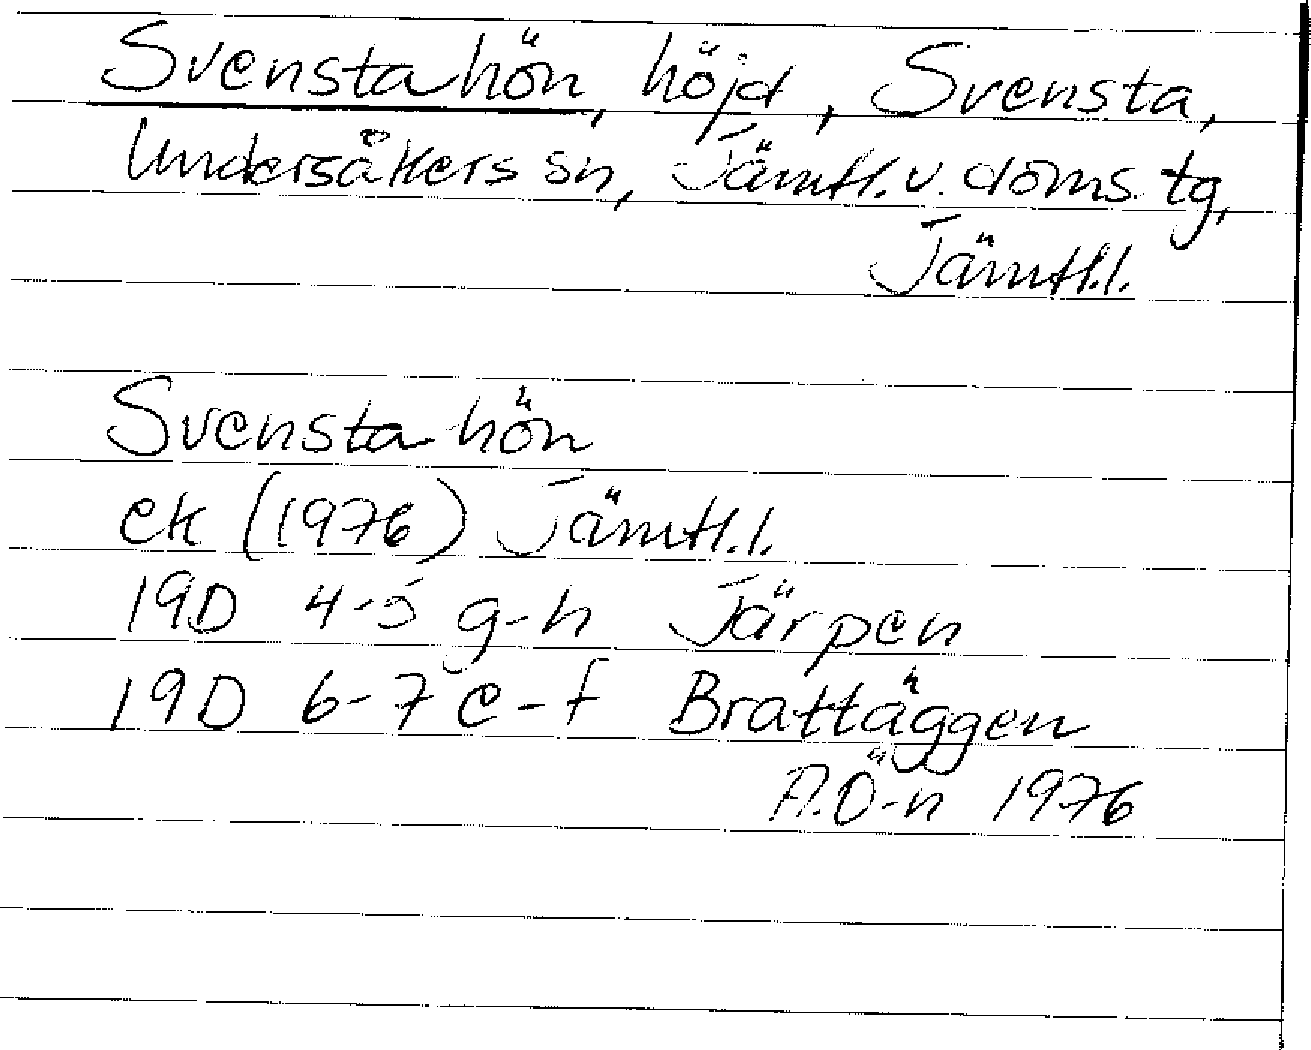 Svenstahön, höjd, Svensta,
Undersåkers sn, Jämtl. v. doms. tg,
Jämtl.l.
Svensta hön
ek (1976) Jämtl.l.
19D 4-5 g-h Järpen
19D 6-7 e-f Brattäggen
A.Ö-n 1976